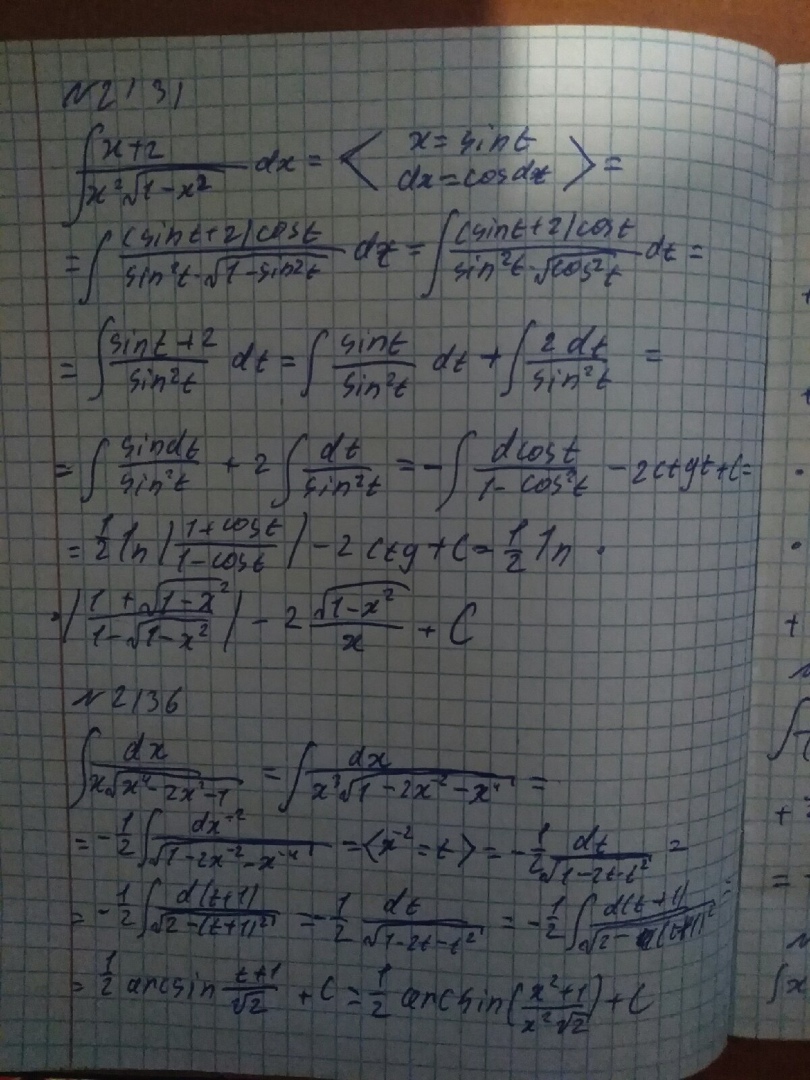 N2131
∫ (x+2)/(x²√(1-x²)) dx = < x = sint, dx = cosdt > =
= ∫ ((sint+2)cost)/(sin²t·√(1-sin²t)) dt = ∫ ((sint+2)cost)/(sin²t·√(cos²t)) dt =
= ∫ (sint+2)/(sin²t) dt = ∫ sint/(sin²t) dt + ∫ 2dt/(sin²t) =
= ∫ sindt/(sin²t) + 2∫ dt/(sin²t) = -∫ dcost/(1-cos²t) - 2ctgt+C=
= 1/2 ln |(1+cost)/(1-cost)| - 2ctg+C = 1/2 ln ·
·|(1+√(1-x²))/(1-√(1-x²))| - 2 √(1-x²)/x + C
N2136
∫ dx/(x√(x⁴-2x²-1)) = ∫ dx/(x³√(1-2x⁻²-x⁻⁴)) =
= -1/2 ∫ dx⁻²/√(1-2x⁻²-x⁻⁴) = <x⁻²=t> = -1/2 dt/√(1-2t-t²) =
= -1/2 ∫ d(t+1)/√(2-(t+1)²) = -1/2 dt/√(1-2t-t²) = -1/2 ∫ d(t+1)/√(2-(t+1)²) =
= 1/2 arcsin (t+1)/√2 + C = 1/2 arcsin((x²+1)/(x²√2)) + C